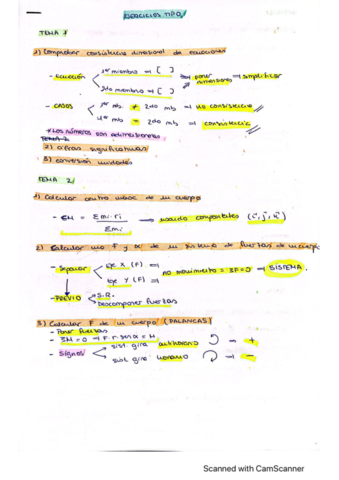 EJERCICIOS TIPO
TEMA 1
1) Comprobar consistencia dimensional de ecuaciones
- Ecuación
1er miembro → [ ]
2do miembro → [ ]
poner dimensiones → simplificar
- CASOS
1er mb. ≠ 2do mb → no consistencia
1er mb = 2do mb → consistencia
* Los números son adimensionales
2) cifras significativas
3) conversión unidades
TEMA 2
1) Calcular centro masa de un cuerpo
- CM = Σmi·ri / Σmi → usando componentes (i, j, k)
2) Calcular una F y α de un sistema de fuerzas de un cuerpo
- Separar
Eje X (F) =
Eje Y (F) =
no movimiento = ΣF=0 → SISTEMA
- PREVIO
S.R.
Descomponer fuerzas
3) Calcular F de un cuerpo (PALANCAS)
- Poner fuerzas
- ΣM = 0 → F·r·senα = M
- Signos
sist. gira antihorario → +
sist. gira horario → -
Scanned with CamScanner